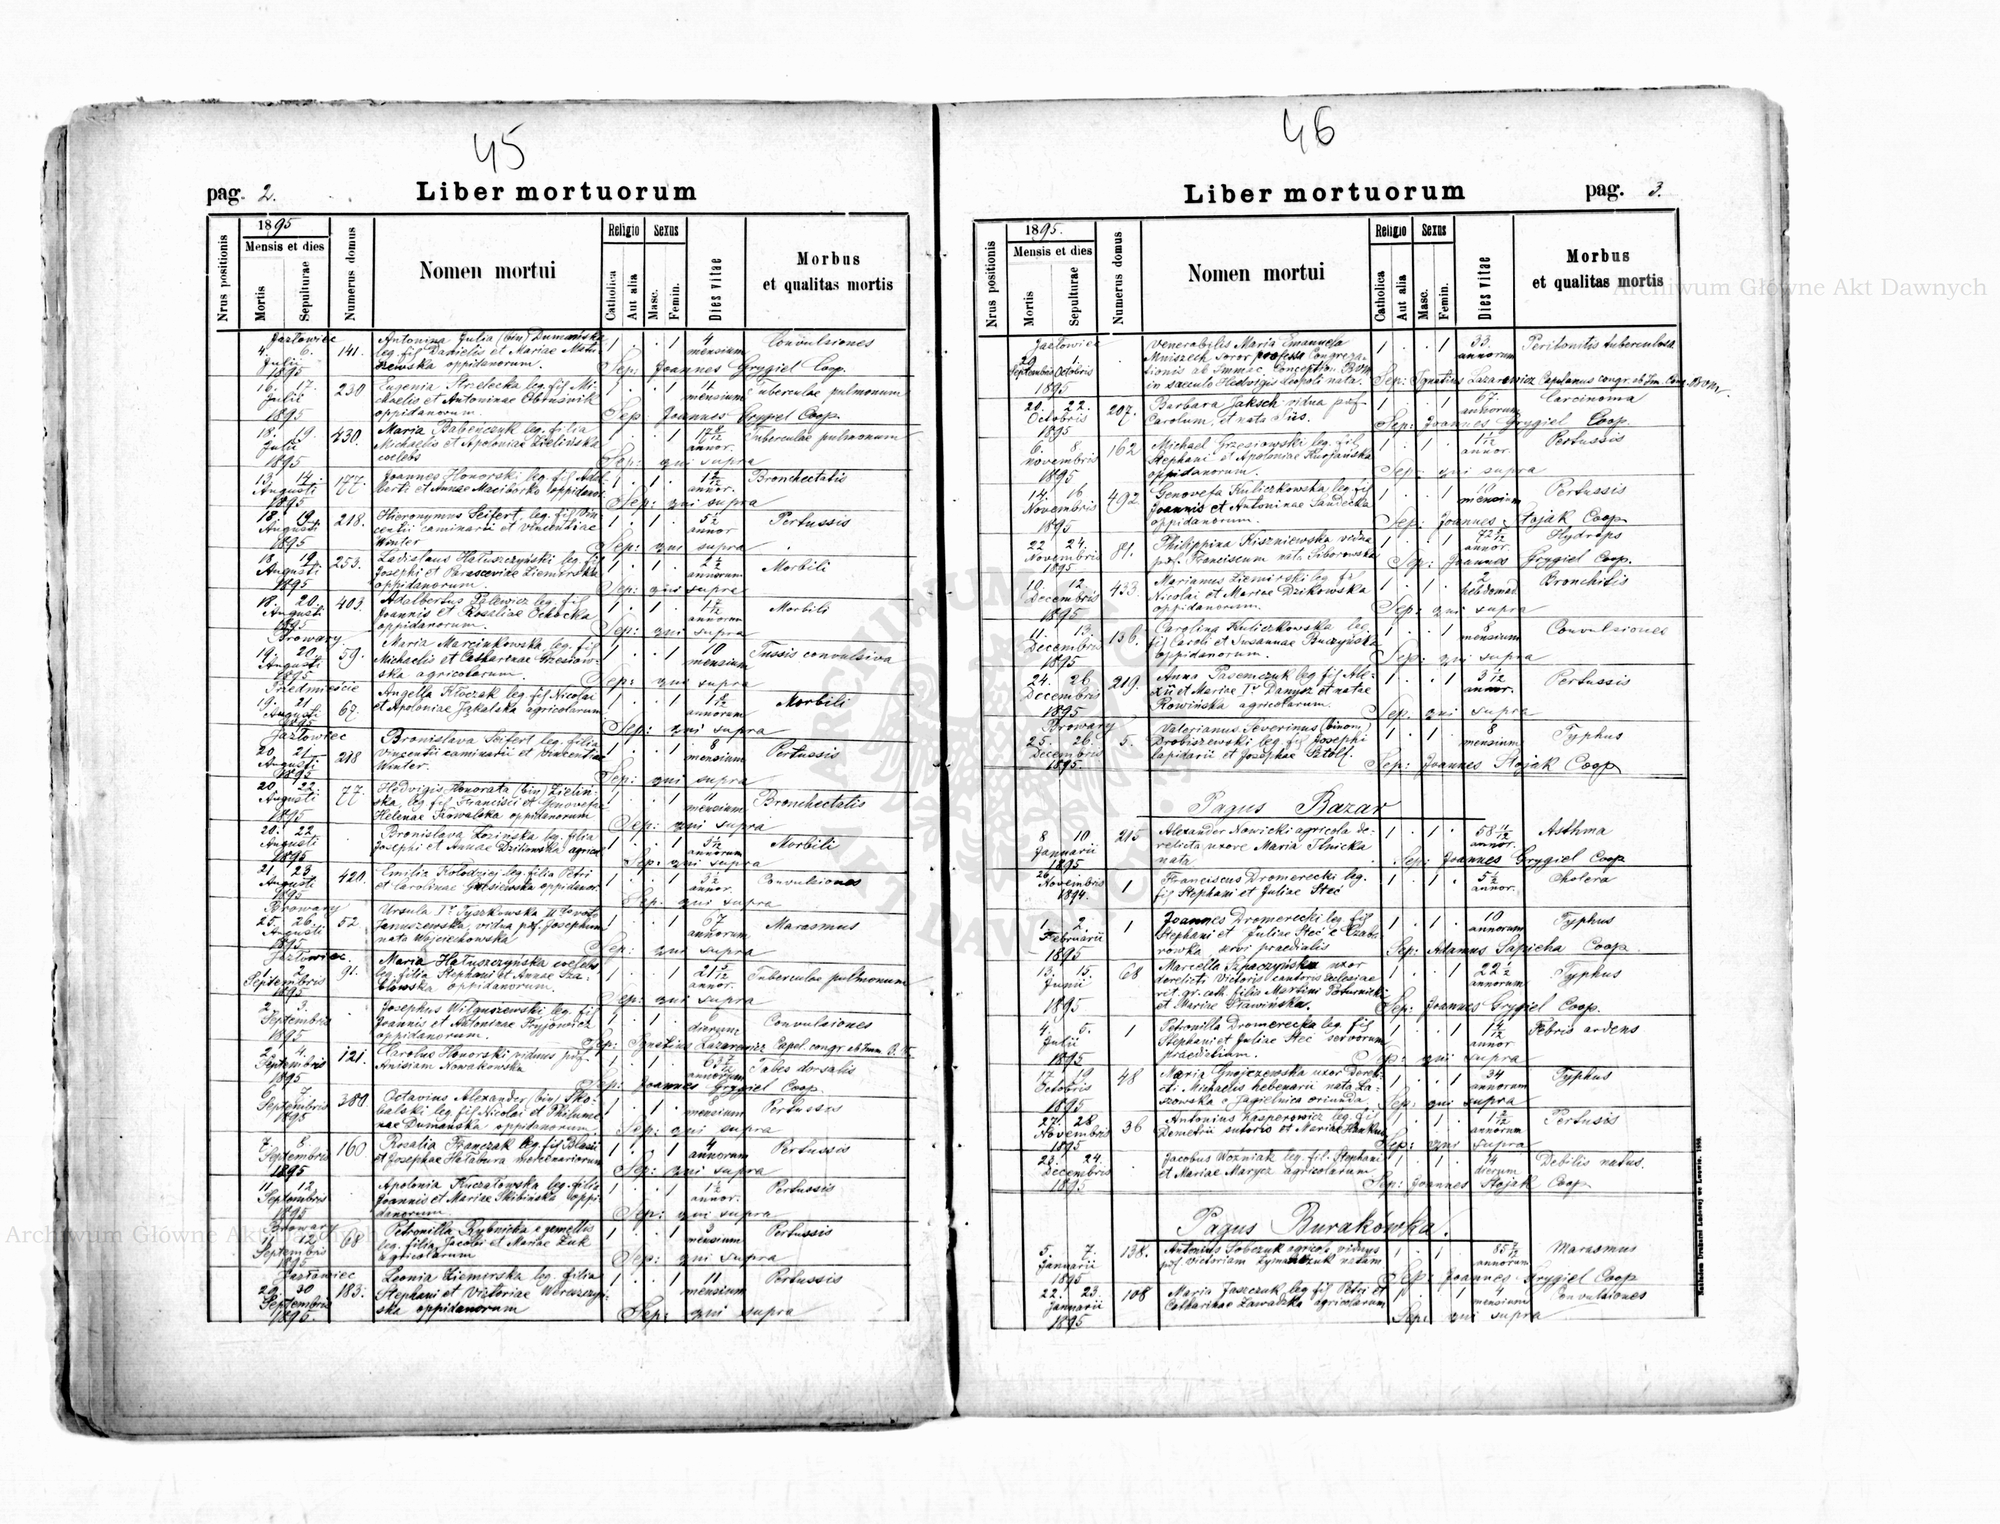 45
pag. 2.
Liber mortuorum
Nrus positionis
1895
Mensis et dies
Mortis
Sepulturae
Numerus domus
Nomen mortui
Religio
Catholica
Aut alia
Sexus
Masc.
Femin.
Dies vitae
Morbus
et qualitas mortis
Jazłowiec
4. 6. 141. Antonina Julia (bin) Dumańska 1 . . 1 4 Convulsiones
Julii leg. fil Danielis et Mariae mensium
1895 oppidanorum. Sep: Joannes Grygiel Coop.
16. 17. 230 Eugenia Strzelecka leg. fil Mi- 1 . . 1 11 Tuberculae pulmonum
Julii chaelis et Antoninae mensium
1895 oppidanorum. Sep: Joannes Grygiel Coop.
18. 19. 230. Maria Babeńczyk leg. filia 1 . . 1 Tuberculae pulmonum
Julii Michaelis et Apoloniae Zielińska annor.
1895 caelebs Sep: qui supra
13. 14. 177. Joannes Honorski leg. fil Adal- 1 . 1 . Bronchectatis
Augusti berti et Annae Maciborko oppidanor. annor.
1895 Sep: qui supra
18. 19. 218. Hieronymus Seifert leg. fil Vin- 1 . 1 . 5½ Pertussis
Augusti centii caminarii et Vincentiae annor.
1895 Winter Sep: qui supra
18. 19. 253. Ladislaus Hałuszczyński leg. fil 1 . 1 . Morbili
Augusti Josephi et Parascevide Ziemirska annorum
1895 oppidanorum. Sep: qui supra
18. 20. 403. Adalbertus Palewicz leg. fil 1 . 1 . Morbili
Augusti Joannis et Rosaliae Ochocka annorum
1895 oppidanorum. Sep: qui supra
Browary
19. 20. 59. Maria Marcinkowska leg. fil 1 . . 1 10 Tussis convulsiva
Augusti Michaelis et Catharinae Grzesiow- mensium
1895 ska agricolarum. Sep: qui supra
Przedmieście
19. 21 67. Angella Kloczak leg. fil Nicolai 1 . . 1 Morbili
Augusti et Apoloniae Jąkalska agricolarum annorum
1895 Sep: qui supra
Jazłowiec
20. 21 218 Bronislava Seifert leg. filia 1 . . 1 8 Pertussis
Augusti Vincentii caminarii et Vincentiae mensium
1895 Winter. Sep: qui supra
20. 22. 77. Hedvigis Honorata (bin) Zieliń- 1 . . 1 11 Bronchectatis
Augusti ska, leg fil Francisci et Genovefae mensium
1895 Helenae Kowalska oppidanorum Sep: qui supra
20. 22 Bronislava Łozinska leg. filia 1 . . 1 Morbili
Augusti Josephi et Annae agricol annorum
1895 Sep: qui supra
21 23 420. Emilia Kołodziej leg. filia Petri 1 . . 1 Convulsiones
Augusti et Carolinae oppidanor. annor.
1895 Sep: qui supra
Browary
25. 26. 52 Ursula Iº Tyszkowska IIdo voto 1 . . 1 67 Marasmus
Augusti Januszewska, vidua p.f. Josephum annorum
1895 nata Wojciechowska Sep: qui supra
Jazłowiec.
1. 2. 91. Maria Hałuszczyńska caelebs 1 . . 1 Tuberculae pulmonum
Septembris leg. filia Stephani et Annae annor.
1895 oppidanorum. Sep: qui supra
2. 3. Josephus Wilguszewski leg. fil 1 . 1 . Convulsiones
Septembris Joannis et Antoninae Fryjowicz dierum
1895 oppidanorum. Sep: Ignatius Lazarewicz Capel. congr. ab Imm.
2. 4. 121. Carolus Honorski viduus p.f. 1 . 1 . Tabes dorsalis
Septembris Anisiam Nowakowska annorum
1895 Sep: Joannes Grygiel Coop.
6 7 380 Octavius Alexander (bin) Sko- 1 . 1 . 8 Pertussis
Septembris balski leg. fil Nicolai et Philume- mensium
1895 nae Dumańska oppidanorum. Sep: qui supra
7 8 160 Rosalia Banczak leg. fil Blasii 1 . . 1 4 Pertussis
Septembris et Josephae Hałabura mercenariorum annorum
1895 Sep: qui supra
11 12 Apolonia Kuczatowska leg. filia 1 . . 1 1½ Pertussis
Septembris Joannis et Mariae Skibińska oppi- annor.
1895 danorum. Sep: qui supra
Browary
11 12 68 Petronilla Rybnicka e gemellis 1 . . 1 3 Pertussis
Septembris leg. filia Jacobi et Mariae Żuk mensium
1895 agricolarum Sep: qui supra
Jazłowiec
29. 30. 183. Leonia Ziemirska leg. filia 1 . . 1 11 Pertussis
Septembris Stephani et Victoriae mensium
1895. ska oppidanorum Sep: qui supra
46
Liber mortuorum
pag. 3.
Nrus positionis
1895.
Mensis et dies
Mortis
Sepulturae
Numerus domus
Nomen mortui
Religio
Catholica
Aut alia
Sexus
Masc.
Femin.
Dies vitae
Morbus
et qualitas mortis
Jazłowiec
29. 1. Venerabilis Maria Emanuela 1 . . 1 33. Peritonitis tuberculosa
Septembris Octobris Mniszech Soror professa Congrega- annorum
1895 tionis ab Immac. Conception. B.V.M.
in saeculo Hedvigis Leopoli nata. Sep: Ignatius Lazarewicz Capelanus congr. ab Im. Conc. B.V.M.
20. 22. 207. Barbara Jaksch vidua p.f. 1 . . 1 67. Carcinoma
Octobris Carolum, et nata Süs. annorum
1895 Sep: Joannes Grygiel Coop.
6. 8 162 Michael Grzesiowski leg. fil 1 . 1 . Pertussis
novembris Stephani et Apoloniae Kurjańska annor.
1895 oppidanorum. Sep: qui supra
14. 16 492. Genovefa Kuliczkowska leg. fil 1 . . 1 10 Pertussis
Novembris Joannis et Antoninae Sandecka mensium
1895 oppidanorum. Sep: Joannes Stojak Coop
22 24. 81. Philippina Kiszniewska vidua 1 . . 1 Hydrops
Novembris p.f. Franciscum nat. Siborowska annor.
1895 Sep: Joannes Grygiel Coop.
10. 12. 433. Marianus Ziemirski leg. fil 1 . 1 . 2 Bronchitis
Decembris Nicolai et Mariae Dzikowska hebdomad
1895 oppidanorum. Sep: qui supra
11. 13. 136. Carolina Kuliczkowska leg. 1 . . 1 8 Convulsiones
Decembris fil Caroli et Susannae Buczyńska mensium
1895 oppidanorum. Sep: qui supra
24. 26 219. Anna Pasemczuk leg fil Ale- 1 . . 1 Pertussis
Decembris xii et Mariae Iº Danysz et natae annor.
1895 Rowińska agricolarum. Sep. qui supra
Browary
25. 26. 5. Valerianus Severinus (binom) 1 . 1 . 8 Typhus
Decembris Drobiszewski leg. fil Josephi mensium
1895. lapidarii et Josephae Sztolf. Sep: Joannes Stojak Coop
Pagus Bazar
8 10 215 Alexander Nowicki agricola de- 1 . 1 . Asthma
Januarii relicta uxore Maria Ilnicka annor.
1895 nata Sep: Joannes Grygiel Coop
26 1 Franciscus Dromerecki leg. 1 . 1 . 5½ Cholera
Novembris fil Stephani et Juliae Steć annor.
1894.
1 2 1 Joannes Dromerecki leg. fil 1 . 1 . 10 Typhus
Februarii Stephani et Juliae Steć e Szabe- annorum
1895 rowka servi praedialis Sep: Adamus Sapieha Coop.
13. 15. 68 Marcella Szpaczyńska uxor 1 . . 1 22½ Typhus
Junii derelicti Victoris cantoris ecclesiae annorum
1895 rit. gr. cath. filia Martini
et Mariae Stawińska. Sep: Joannes Grygiel Coop.
4 5. 1 Petronilla Dromerecka leg. fil 1 . . 1 Febris ardens
Julii Stephani et Juliae Steć servorum annor
1895 praedialium. Sep: qui supra
17 19 48 Maria Gnojczewska uxor dereli- 1 . . 1 34 Typhus
Octobris cti Michaelis hebenarii nata La- annorum
1895 szowska e Jagielnica oriunda. Sep: qui supra
27. 28 36 Antonius Kasperowicz leg. fil 1 . 1 . Pertusis
Novembris Demetrii sutoris et Mariae annorum
1895 Sep: qui supra
23. 24. Jacobus Woźniak leg. fil. Stephani 1 . 1 . 14 Debilis natus.
Decembris et Mariae Marycz agricolarum dierum
1895 Sep: Joannes Stojak Coop
Pagus Burakówka.
5. 7. 138. Antonius Sobczuk agricola viduus 1 . 1 . Marasmus
Januarii p.f. Victoriam natam annorum
1895 Sep: Joannes Grygiel Coop
22. 23. 108 Maria Jasiczuk leg. fil Petri et 1 . . 1 4 Convulsiones
Januarii Catharinae Zawadzka agricolarum mensium
1895 Sep: qui supra
Archiwum Główne Akt Dawnych
Archiwum Główne Akt Dawnych
ARCHIWUM GŁÓWNE AKT DAWNYCH